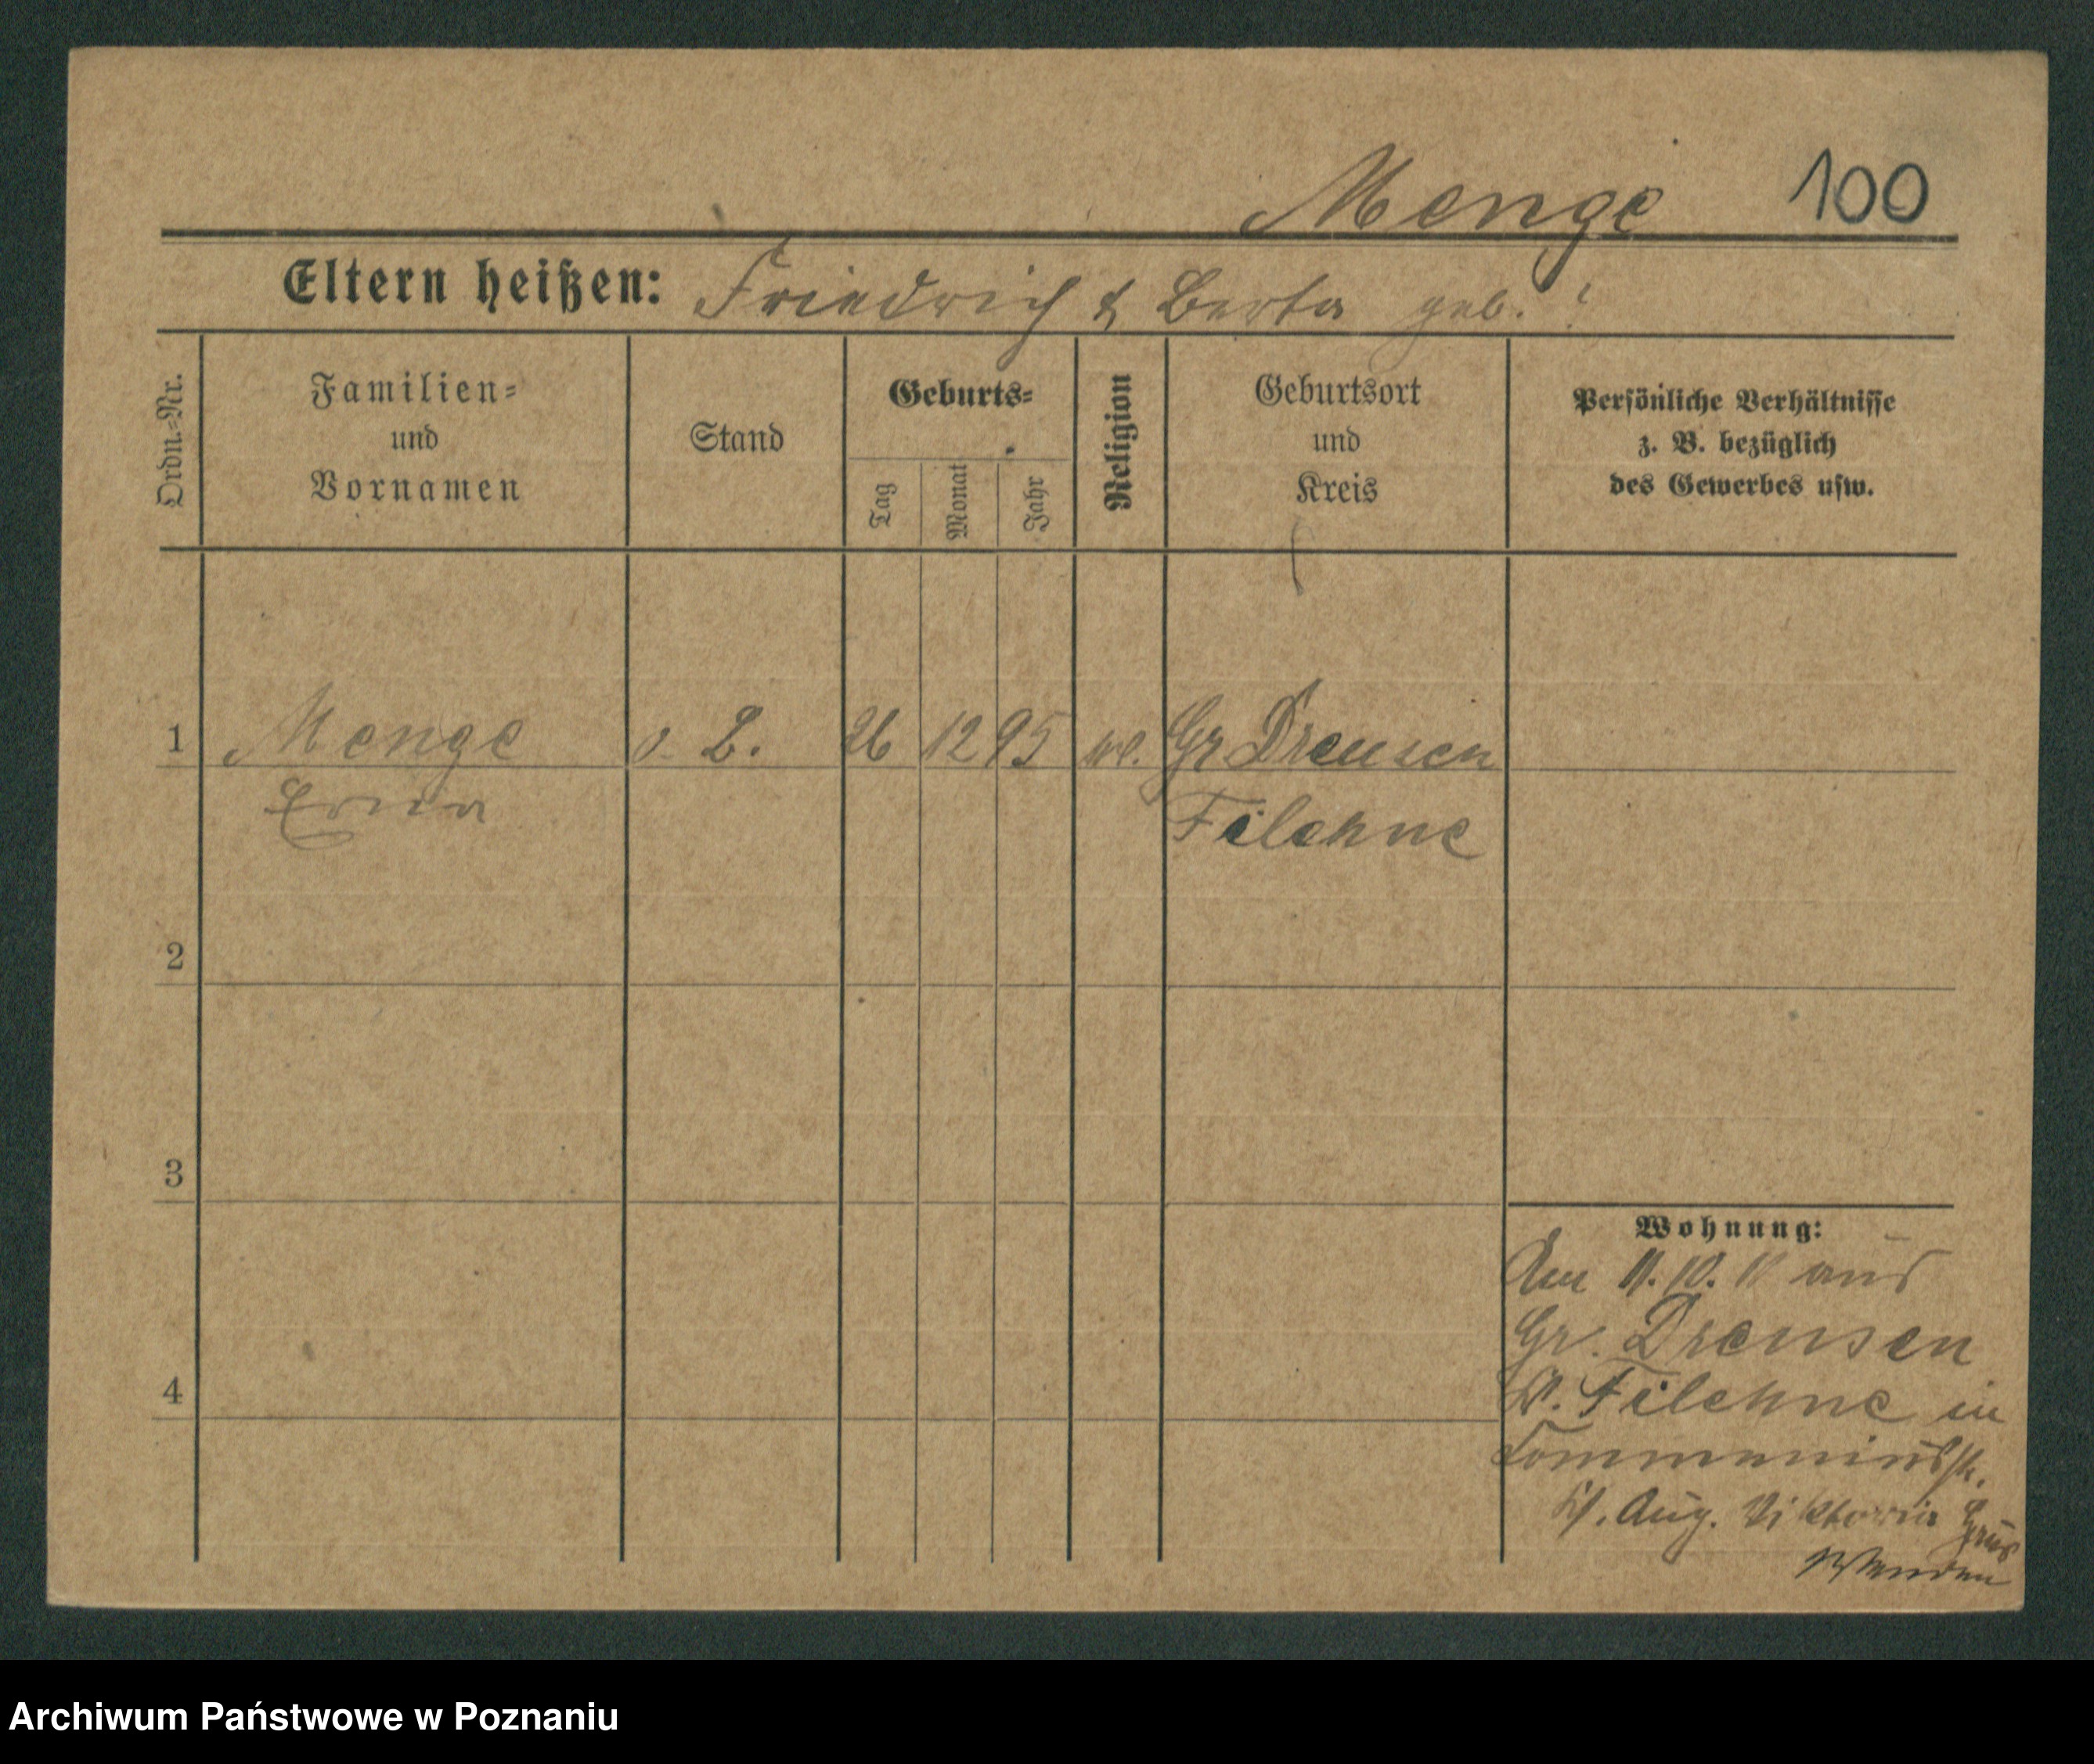 Menge 100
Eltern heißen: Friedrich & Berta geb. ?
Ordn.-Nr.
Familien-
und
Vornamen
Stand
Geburts-
Tag
Monat
Jahr
Religion
Geburtsort
und
Kreis
Persönliche Verhältnisse
z. B. bezüglich
des Gewerbes usw.
1 Menge 26 12 95 Gr Drensen
Erna Filehne
2
3
4
Wohnung:
Am 11. 10. 11 aus
Gr. Drensen
Filehne in
Aug. Viktoria
Archiwum Państwowe w Poznaniu